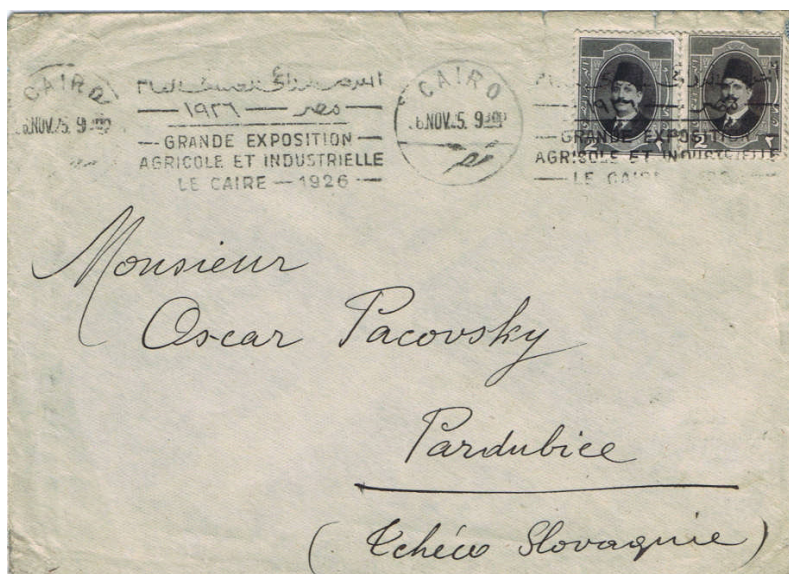 CAIRO
6.NOV.25. 9
١٩٢٦ — مصر
GRANDE EXPOSITION
AGRICOLE ET INDUSTRIELLE
LE CAIRE — 1926
CAIRO
6.NOV.25. 9
١٩٢٦ — مصر
GRANDE EXPOSITION
AGRICOLE ET INDUSTRIELLE
LE CAIRE
2 ٢
Monsieur
Oscar Pacovsky
Pardubice
(Tchéco Slovaquie)